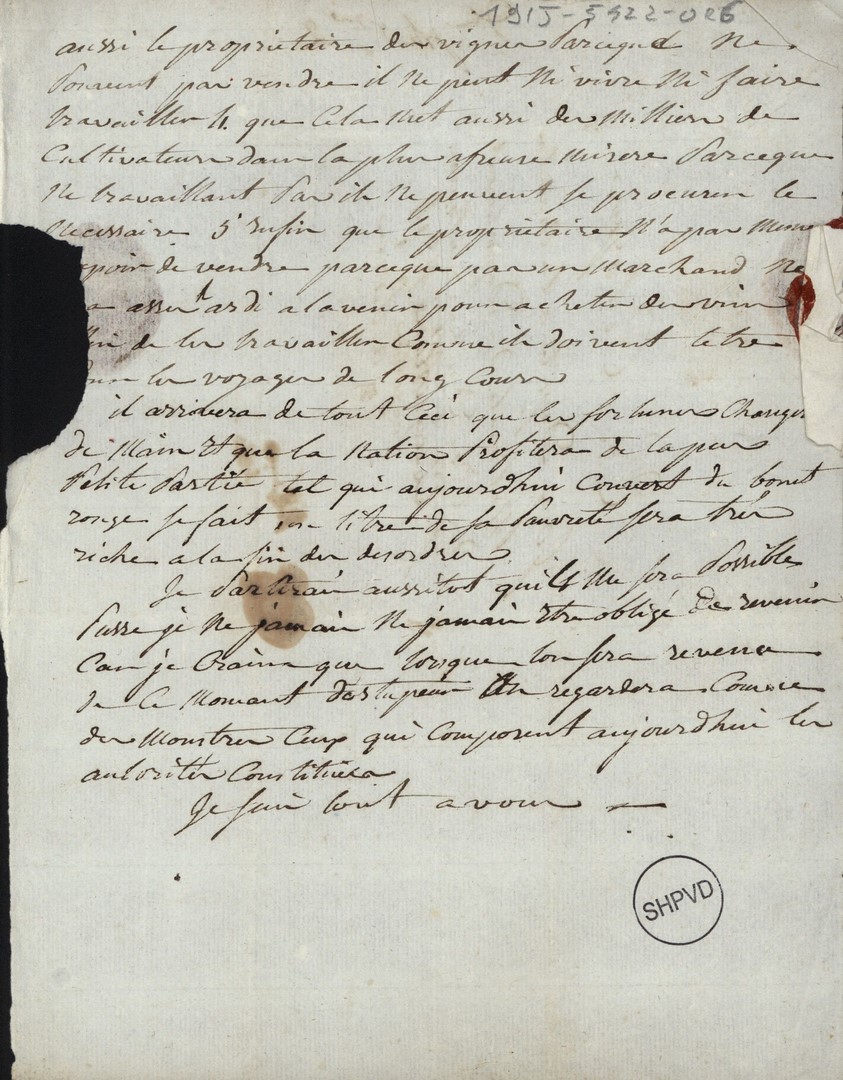 191J-5922-026
aussi le proprietaire des vignes Parceque Ne
Pouvant pas vendre il ne peut Ni vivre Ni faire
travailler 4. que Cela Met aussi des Millions de
Cultivateurs dans la plus afreuse Misere Parceque
Ne travaillant Pas ils Ne peuvent se procurer le
Necessaire 5° Enfin que le proprietaire N'a pas Meme
espoir de vendre parceque pas un Marchand Ne
assés ardi a lavenir pour acheter des vins
de les travailler Comme ils doivent letre
les voyages de long Cours
il arrivera de tout Ceci que les fortunes Changeron
de Main Et que la Nation Profitera de la plus
Petite Partie tel qui aujourdhui Couvert du bonet
rouge se fait un titre de sa Pauvreté sera tres
riche a la fin des desordres
Je Partirai aussitot quil Me sera Possible
Passe je Ne jamais Ne jamais Etre obligé De revenir
Car je Crains que lorsque lon sera revenu
de Ce Momant de stupeur On regardera Comme
des Monstres Ceux qui Composent aujourdhui les
autorités Constituées
Je suis tout a vous —
SHPVD